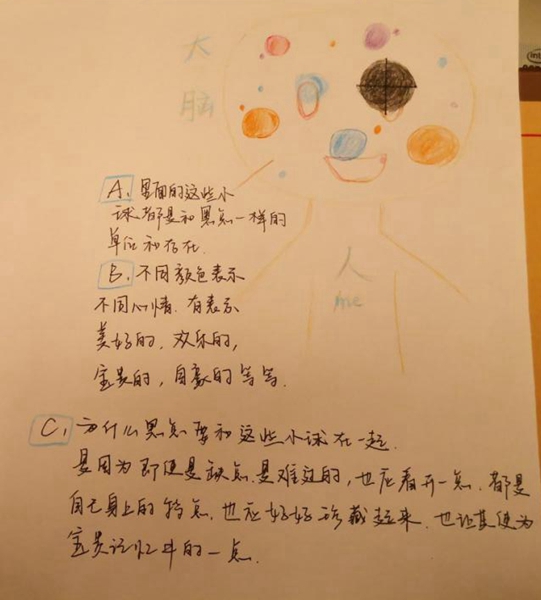 大
脑
A. 里面的这些小
球都是和黑点一样的
单位和存在.
B. 不同颜色表示
不同心情. 有表示
美好的, 欢乐的,
宝贵的, 自豪的等等.
人
me
C. 为什么黑点要和这些小球在一起.
是因为即便是缺点是难过的, 也应看开一点. 都是
自己身上的特点, 也应好好珍藏起来. 也让其便为
宝贵记忆中的一点.